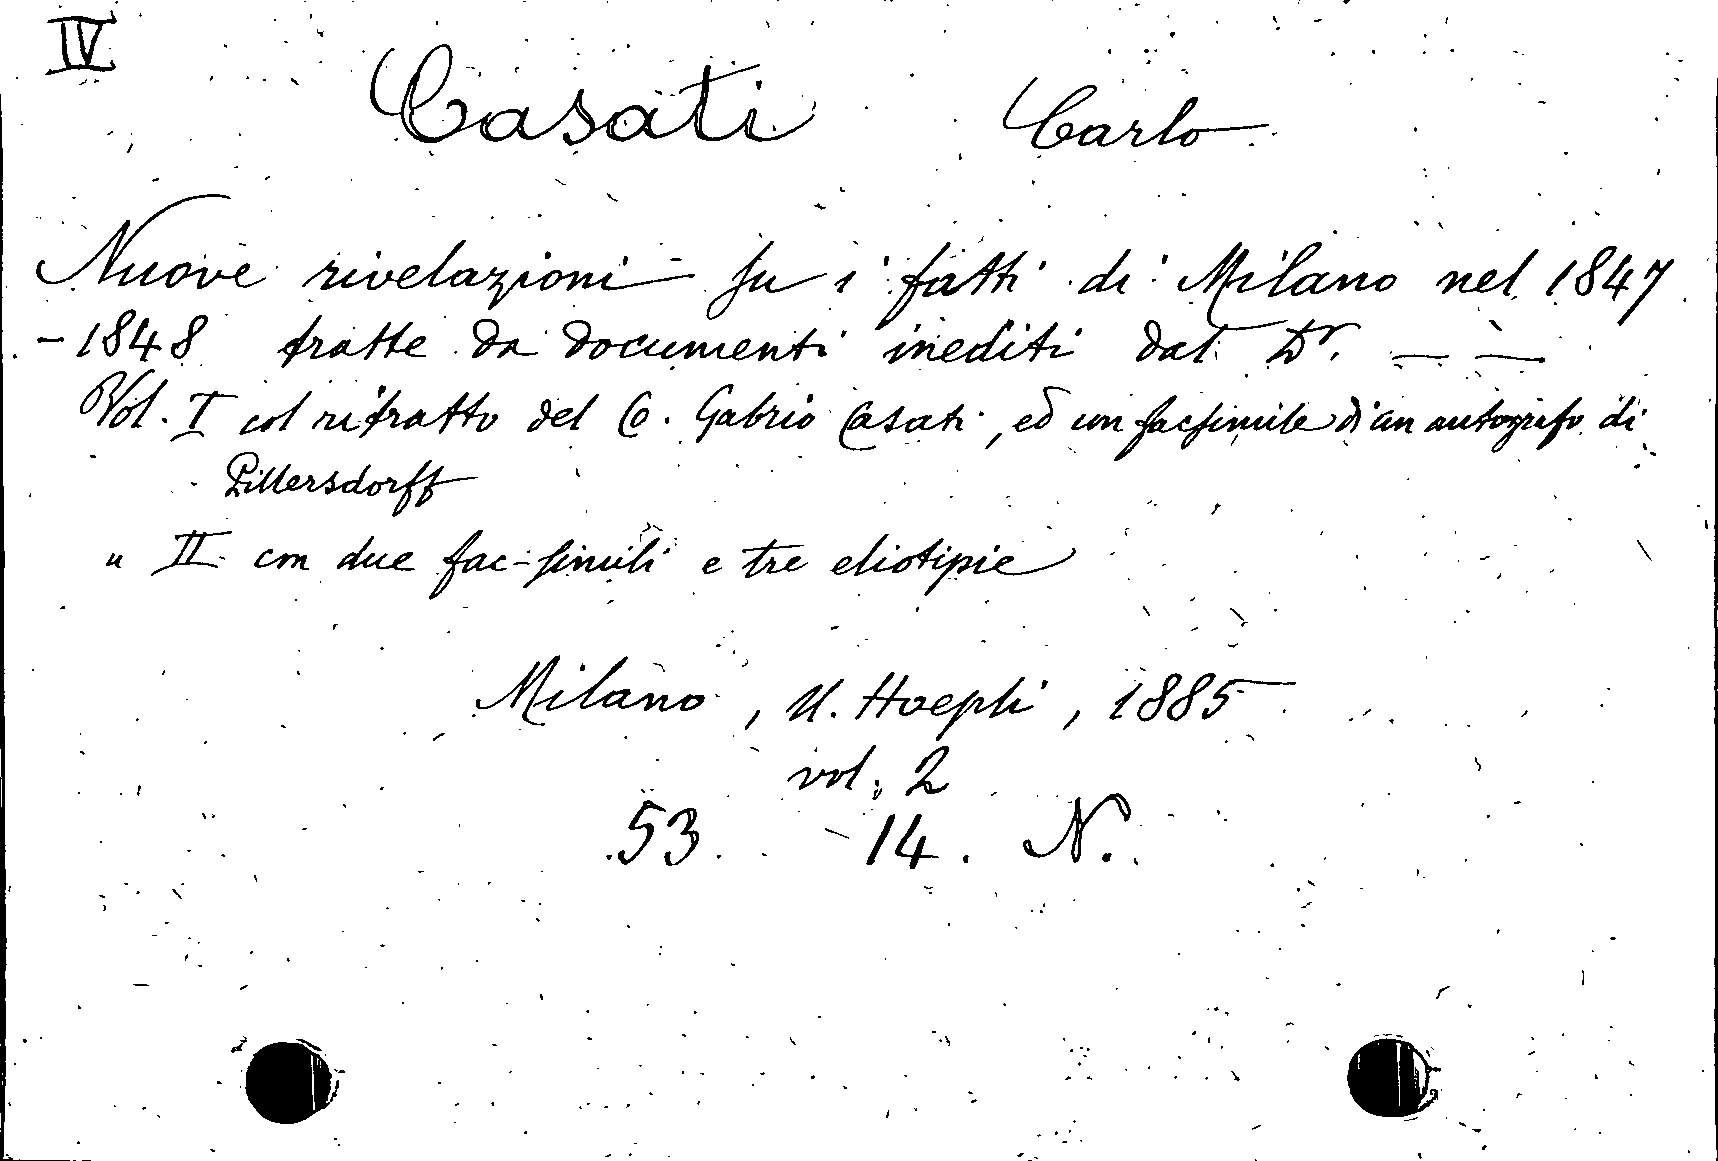 IV
Casati Carlo
Nuove rivelazioni su i fatti di Milano nel 1847
- 1848 tratte da documenti inediti dal Dr. — —
Vol. I col ritratto del Co. Gabrio Casati, ed un facsimile di un autografo di
Pillersdorff
" II con due fac-simili e tre eliotipie
Milano, U. Hoepli, 1885
vol. 2
53 - 14. N.